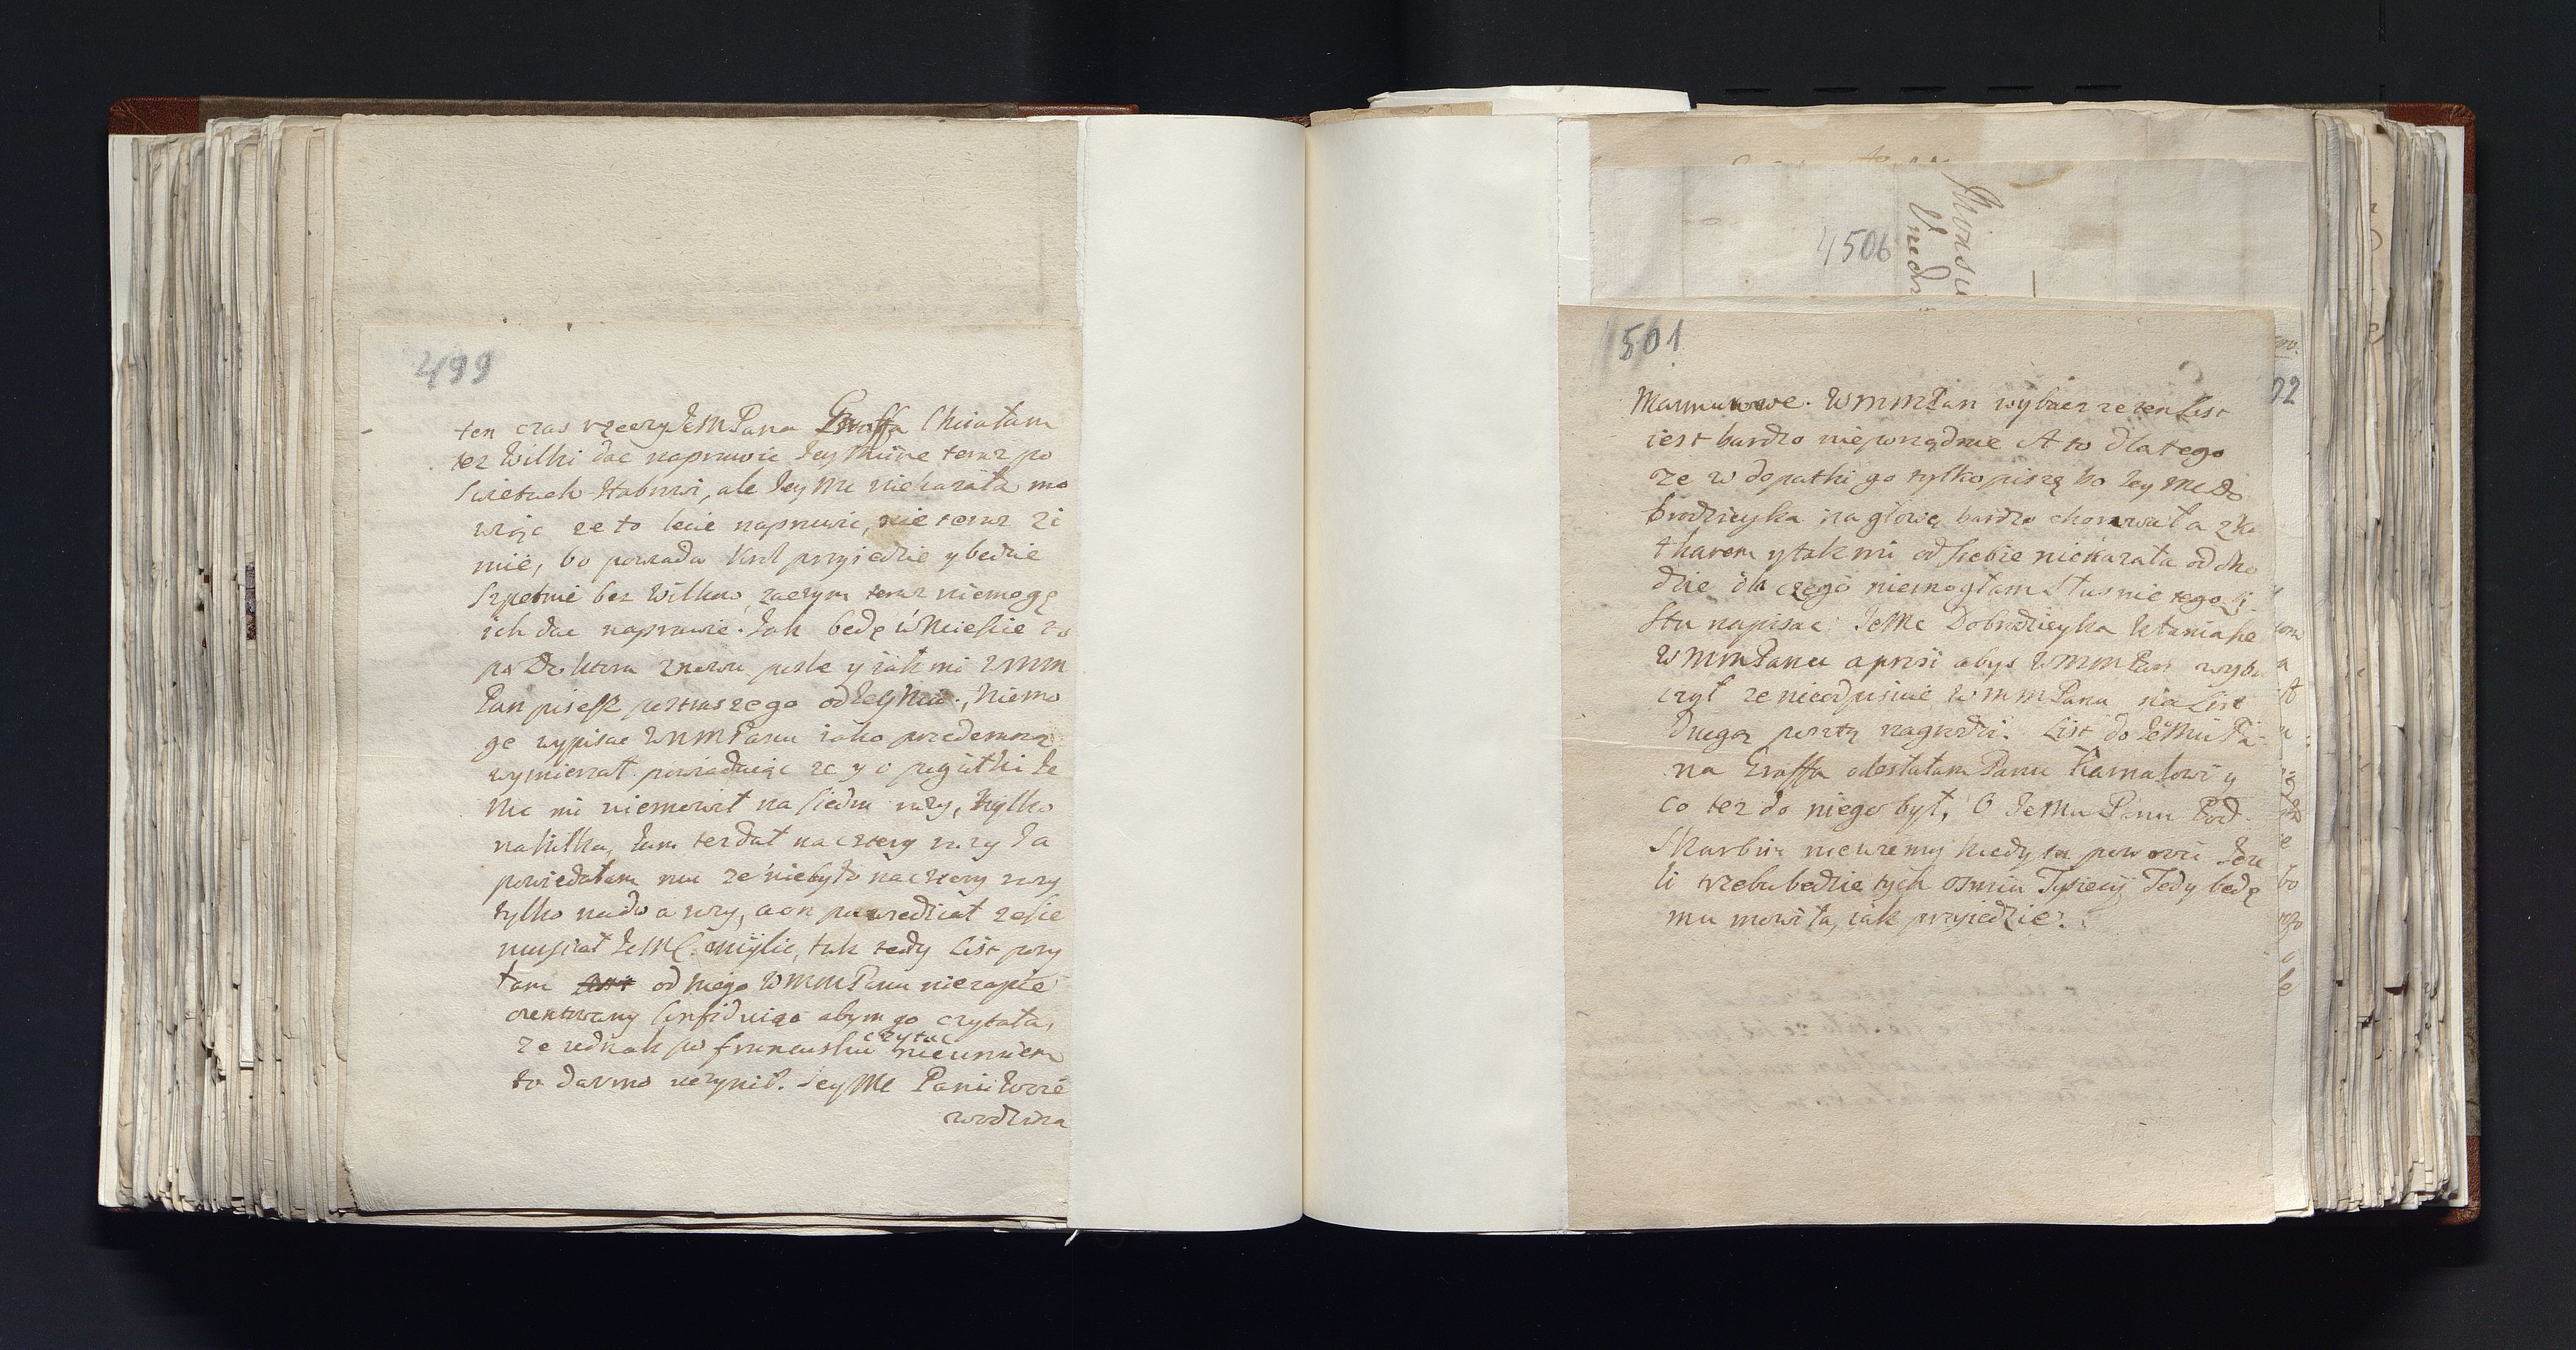 499
ten czas rzeczy JeMPana Groffa Chciałam
tez Wilki dac naprawic Jey Múre teraz po
Swietach Stabrwi, ale Jey Mc niekazała mo
wiąc ze to lecie naprawic, nie teraz zi
mie, bo powiada Krol przyiedzie y bedzie
Szpetnie bez Wilkow, zaczym teraz niemogę
ich dac naprawic. Jak bedę w Miescie to
po Doktora znowu posle y iak mi WMM
Pan pisesz postraszego odJeyMci, Niemo
ge wypisac WMMPanu iako przedemną
wymierzał powiadaiąc ze y o pigułki Je
Mc mi niemowił na siedm razy, tylko
na kilka, Jam tez dał na cztery razy Ja
powiedałam mu ze niebyło na cztery razy
tylko na dwa razy, a on powiedział ze sie
musiał JeMC mylic, tak tedy List posy
łam od niego WMMPanu niezapie
czentowany Confiduiąc abym go czytała,
ze iednak po francusku czytac nieumiem
to darmo uczynił. Jey Mc Pani Woie
wodzina
4506
Monsie
Vnedz
501
Marmurowe. WMMPan wybacz ze ten List
iest bardzo nieporządnie A to dlatego
ze w dopatki go tylko piszę bo Jey Mc Do
brodzieyka na głowę bardzo chorowała z ka
tharem y tak mi od siebie niekazała odcho
dzic dla czego niemogłam słusznie tego li
stu napisac. JeMc Dobrodzieyka kłania sie
WMMPanu a prosi abys WMMPan wyba
czył ze nieodpisuie WMMPanu na List
drugą posztą nagrodzi. List do JeMci Pa
na Groffa odesłałam Panu Karnałowi y
co tez do niego był, O JeMci Panu Pod
Skarbim niewiemy kiedy tu powroci Jeze
li trzeba bedzie tych osmiu Tysiecy Tedy bedę
mu mowiła, iak przyiedzie.
02